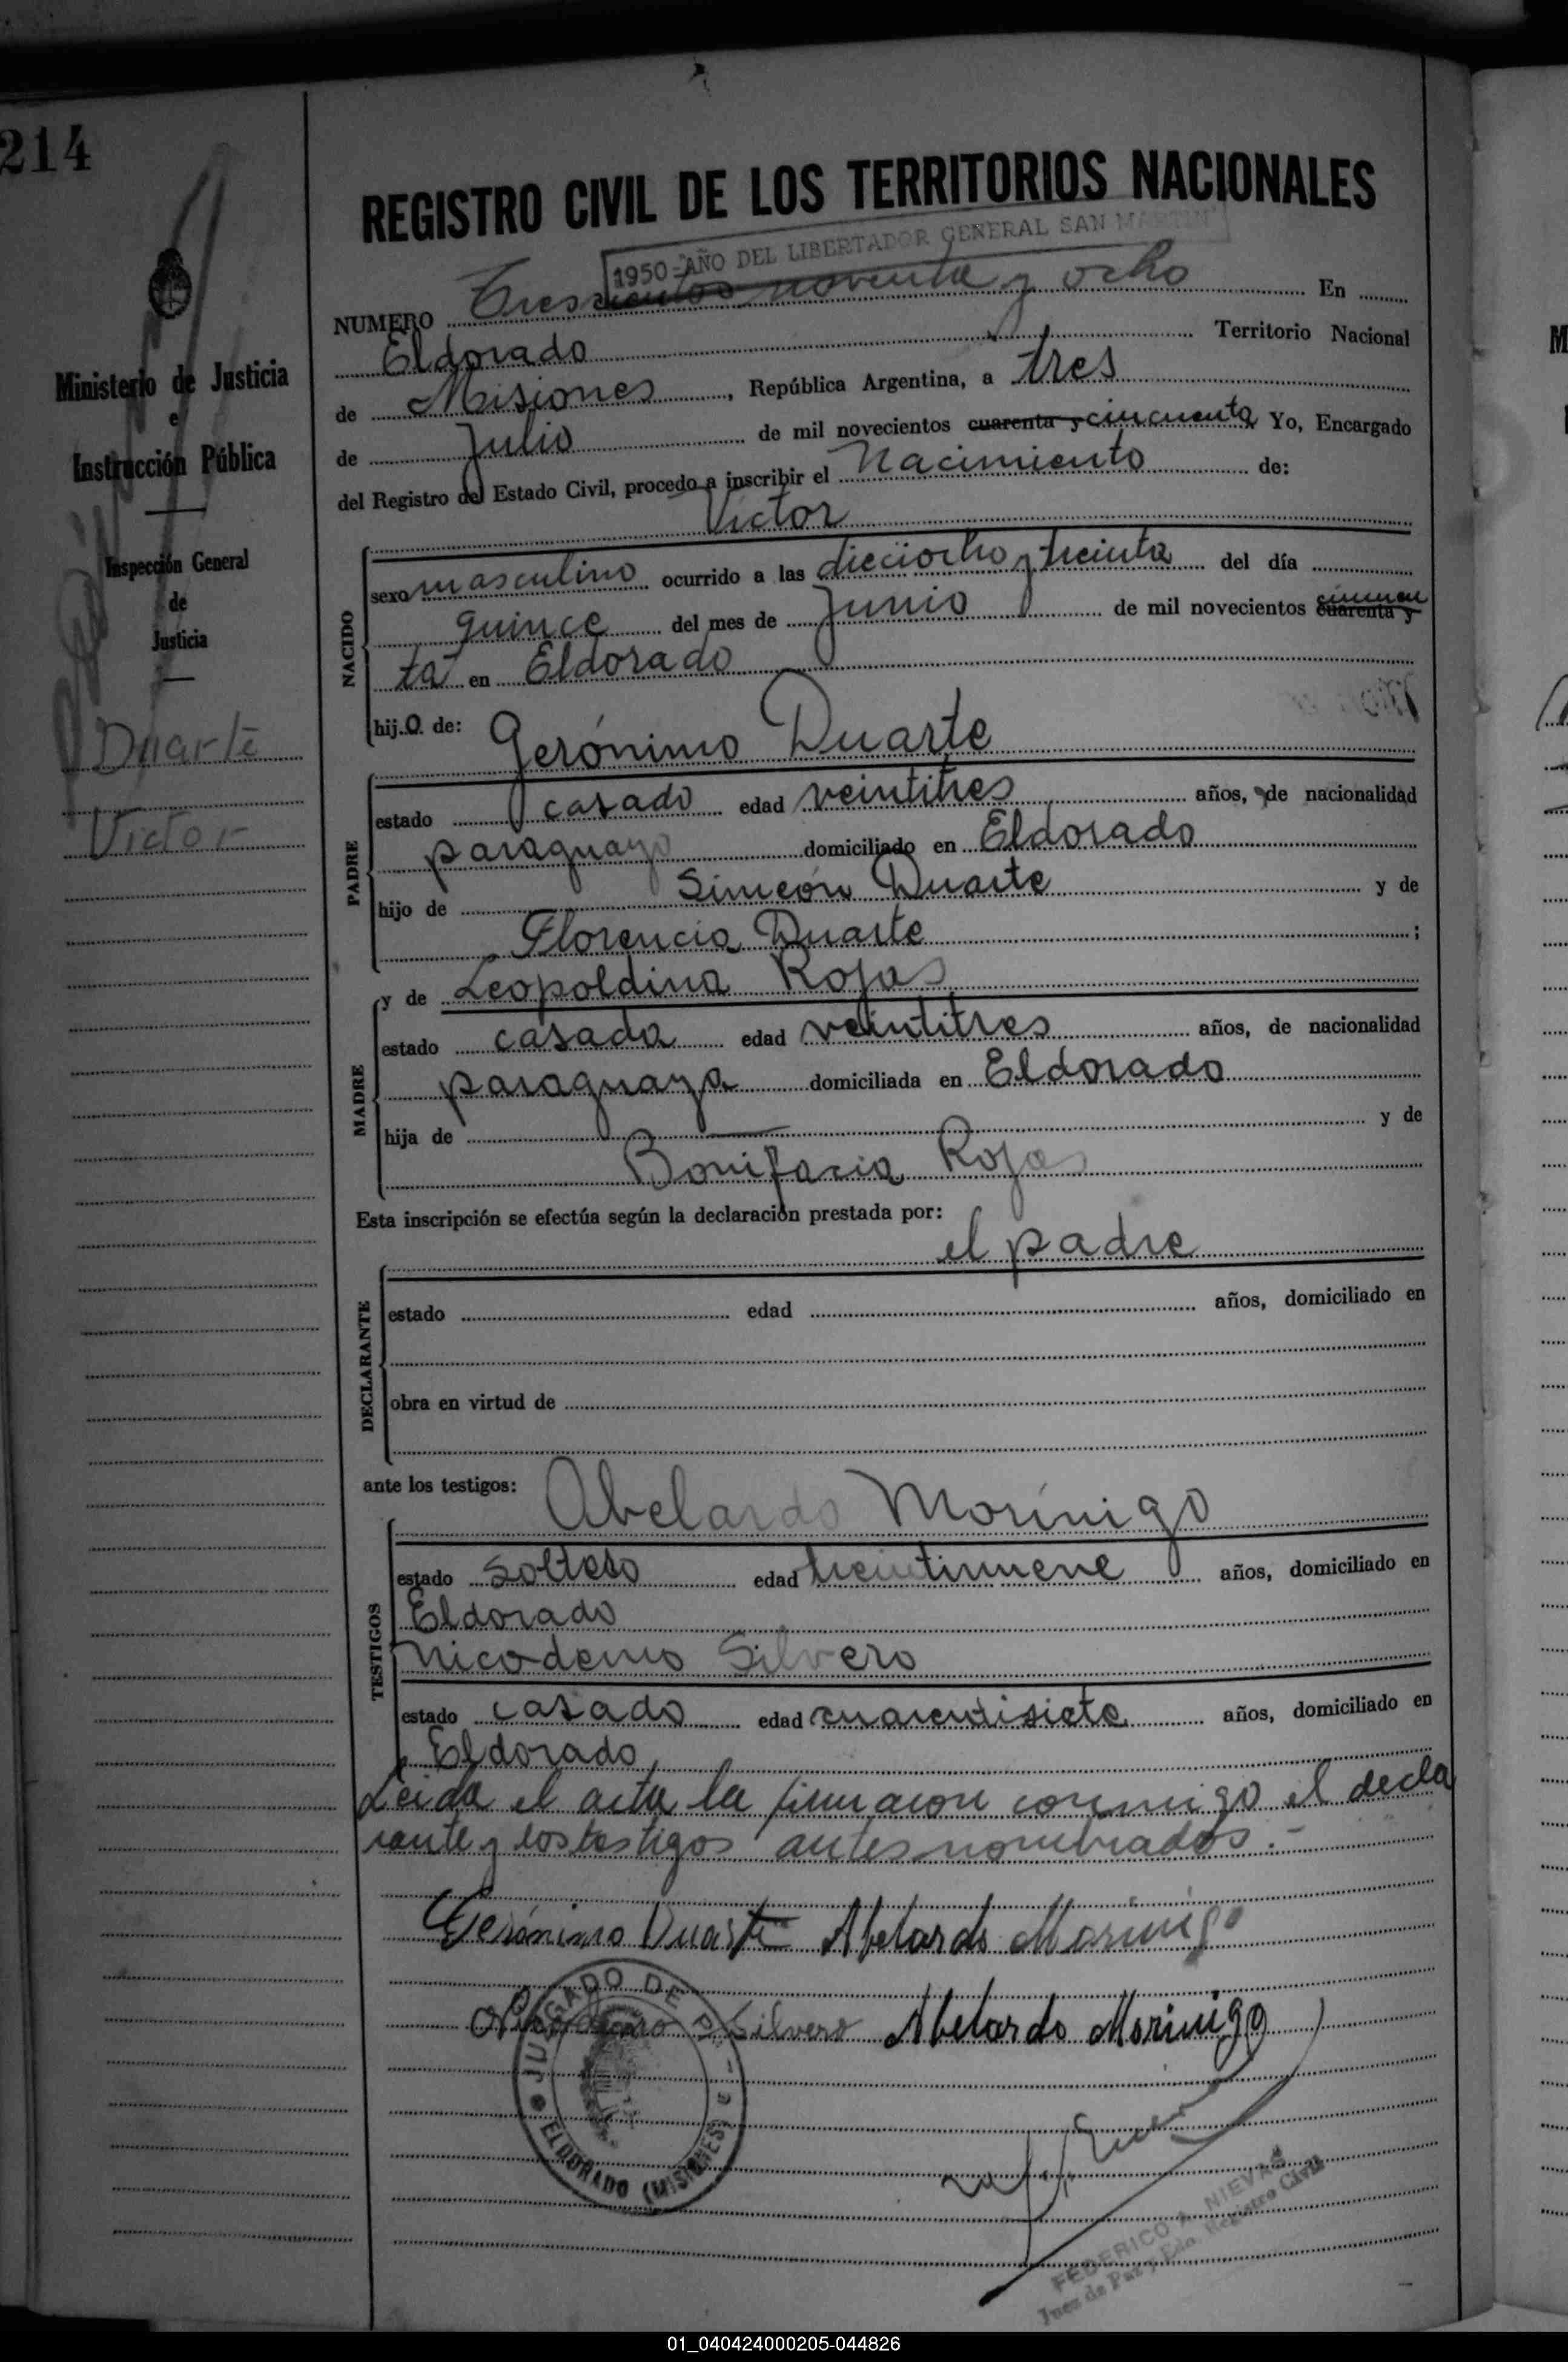 214
REGISTRO CIVIL DE LOS TERRITORIOS NACIONALES
1950-AÑO DEL LIBERTADOR GENERAL SAN MARTIN
NUMERO Trescientos noventa y ocho En
Eldorado Territorio Nacional
de Misiones, República Argentina, a tres
de Julio de mil novecientos cuarenta y cincuenta Yo, Encargado
del Registro del Estado Civil, procedo a inscribir el Nacimiento de:
Victor
NACIDO
sexo masculino ocurrido a las dieciocho y treinta del día
quince del mes de Junio de mil novecientos cuarenta y cincuen
ta en Eldorado
hij.o de: Gerónimo Duarte
PADRE
estado casado edad veintitres años, de nacionalidad
paraguayo domiciliado en Eldorado
hijo de Simeón Duarte y de
Florencia Duarte ;
y de Leopoldina Rojas
MADRE
estado casada edad veintitres años, de nacionalidad
paraguaya domiciliada en Eldorado
hija de y de
Bonifacia Rojas
Esta inscripción se efectúa según la declaración prestada por:
el padre
DECLARANTE
estado edad años, domiciliado en
obra en virtud de
ante los testigos: Abelardo Morínigo
TESTIGOS
estado soltero edad años, domiciliado en
Eldorado
Nicodemo Silvero
estado casado edad cuarentisiete años, domiciliado en
Eldorado
Leida el acta la firmaron conmigo el decla
rante y los testigos antes nombrados.-
Gerónimo Duarte Abelardo Morinigo
Silvero Abelardo Morinigo
JUZGADO DE
ELDORADO (MISIONES)
FEDERICO A. NIEVAS
Juez de Paz y Edo. Registro Civil
Ministerio de Justicia
e
Instrucción Pública
Inspección General
de
Justicia
Duarte
Victor
01_040424000205-044826